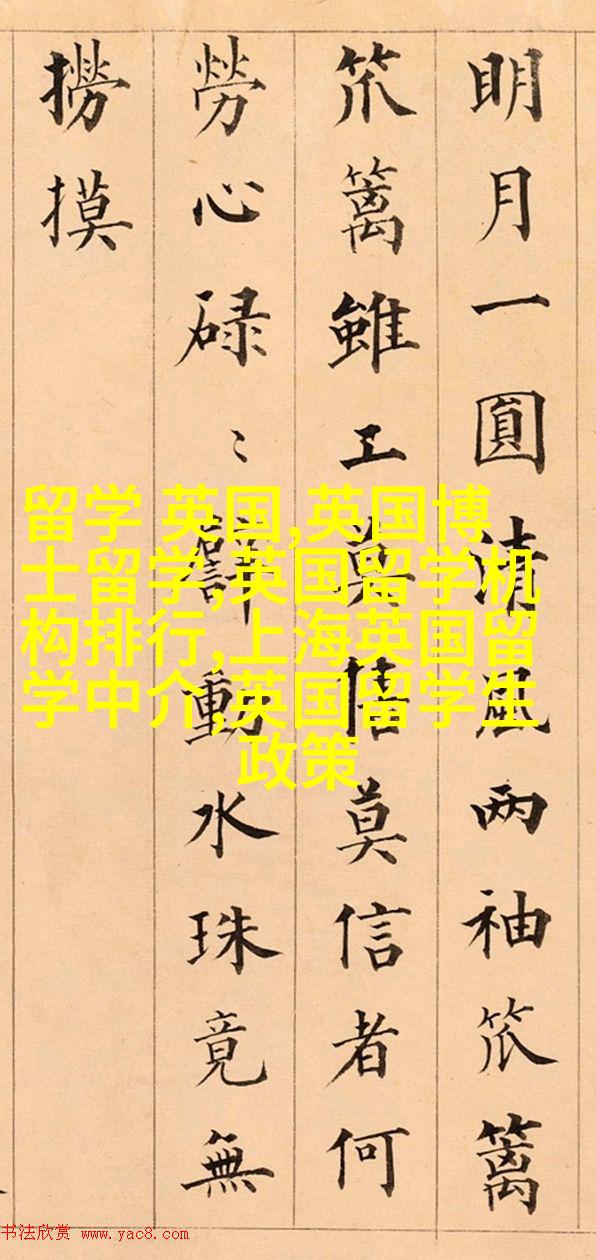 明月一圓清風两袖笊篱
笊篱雖工莫信莫信者何
勞心碌〻動水珠竟無
撈摸
留学 英国,英国博
士留学,英国留学机
构排行,上海英国留
学中介,英国留学生
政策
书法欣赏 www.yac8.com